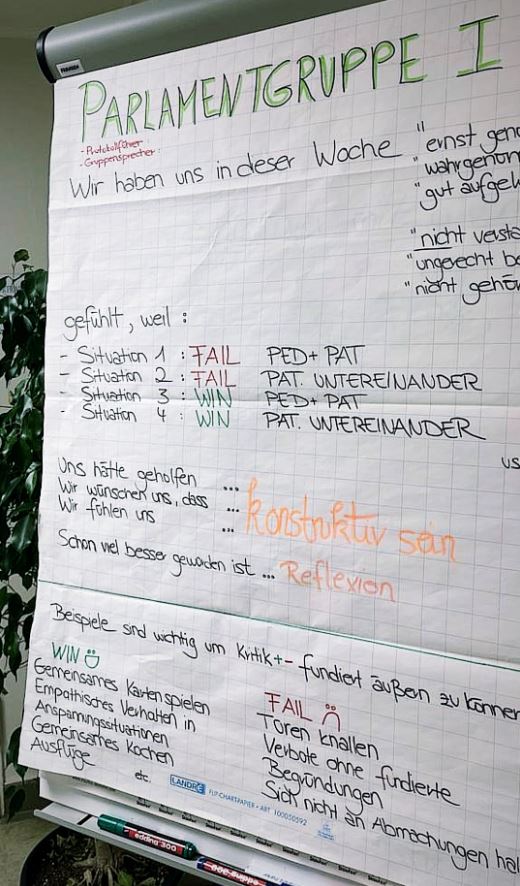 PARLAMENTGRUPPE I
- Protokollführer
- Gruppensprecher
Wir haben uns in dieser Woche "ernst geno
"wahrgenom
"gut aufgeh
"nicht versta
"ungerecht be
"nicht gehör
gefühlt, weil :
- Situation 1 : FAIL PED + PAT
- Situation 2 : FAIL PAT. UNTEREINANDER
- Situation 3 : WIN PED + PAT
- Situation 4 : WIN PAT. UNTEREINANDER
us
Uns hätte geholfen ...
Wir wünschen uns, dass ...
Wir fühlen uns ...
konstruktiv sein
Schon viel besser geworden ist ... Reflexion
Beispiele sind wichtig um Kritik + - fundiert äußern zu können
WIN
Gemeinsames Kartenspielen
Empathisches Verhalten in
Anspannungssituationen
Gemeinsames Kochen
Ausflüge
etc.
FAIL
Türen knallen
Verbote ohne fundierte
Begründungen
Sich nicht an Abmachungen hal
LANDRÉ FLIP-CHARTPAPIER • ART 100050592
edding 300